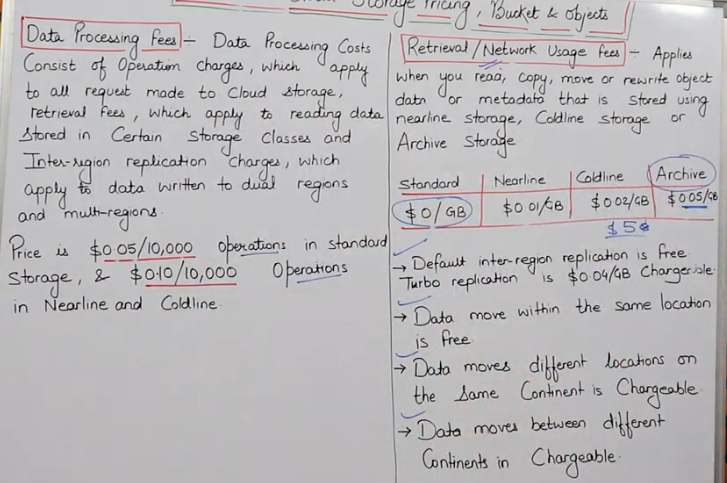 Storage Pricing, Bucket & Objects
Data Processing Fees :- Data Processing Costs
Consist of Operation charges, which apply
to all request made to Cloud Storage,
retrieval fees, which apply to reading data
Stored in Certain Storage Classes and
Inter-region replication Charges, which
apply to data written to dual regions
and multi-regions.
Price is $0.05/10,000 Operations in standard
Storage, & $0.10/10,000 Operations
in Nearline and Coldline.
Retrieval/Network Usage fees :- Applies
when you read, copy, move or rewrite object
data or metadata that is stored using
nearline storage, Coldline storage or
Archive Storage
Standard Nearline Coldline Archive
$0/GB $0.01/GB $0.02/GB $0.05/GB
$5
→ Default inter-region replication is free
Turbo replication is $0.04/GB Chargeable.
→ Data move within the same location
is free.
→ Data moves different locations on
the Same Continent is Chargeable.
→ Data moves between different
Continents in Chargeable.